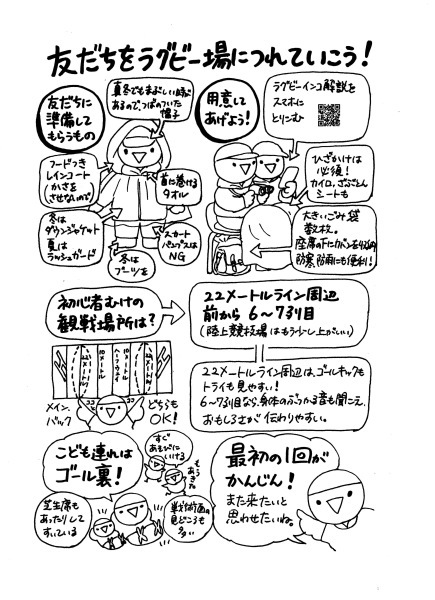 友だちをラグビー場につれていこう!
友だちに
準備して
もらうもの
真冬でもまぶしい時が
あるので、つばのついた
帽子
フードつき
レインコート
(かさを
させないので)
首に巻ける
タオル
冬は
ダウンジャケット
夏は
ラッシュガード
冬は
ブーツを
スカート
パンプスは
NG
用意して
あげよう!
ラグビーインコ解説を
スマホに
とりこむ
ひざかけは
必須!
カイロ、ざぶとん
シートも
大きいごみ袋
数枚。
座席の下にカバンを
防寒、防雨にも便利!
初心者むけの
観戦場所は?
22メートルライン周辺
前から6〜7列目
(陸上競技場はもう少し上がいい)
22メートル
10メートル
ハーフウェイ
10メートル
22メートル
ココ
ココ
メイン、
バック
どちらも
OK!
22メートルライン周辺は、ゴールキックも
トライも見やすい!
6〜7列目なら、身体のぶつかる音も聞こえ、
おもしろさが伝わりやすい。
こども連れは
ゴール裏!
すぐ
あそびに
いける
もう
あきた
芝生席
もあったりして
すいている
戦術面の
見どころも
多い
最初の1回が
かんじん!
また来たいと
思わせたいね。